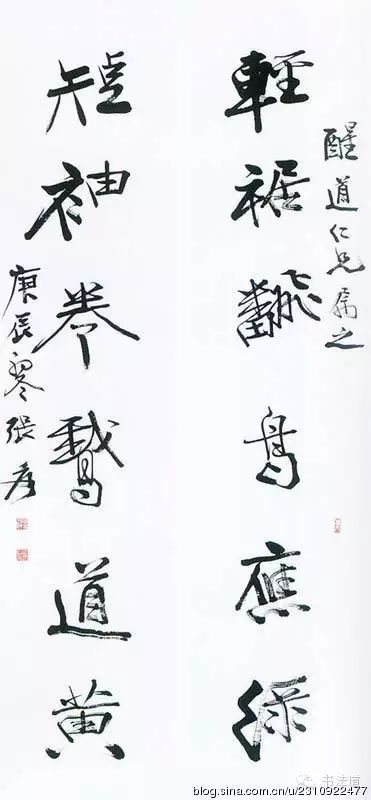 醒道仁兄属之
輕裾飜鳥應緑
短袖卷鵝道黃
庚辰 張爰
书法道
blog.sina.com.cn/u/2310922477